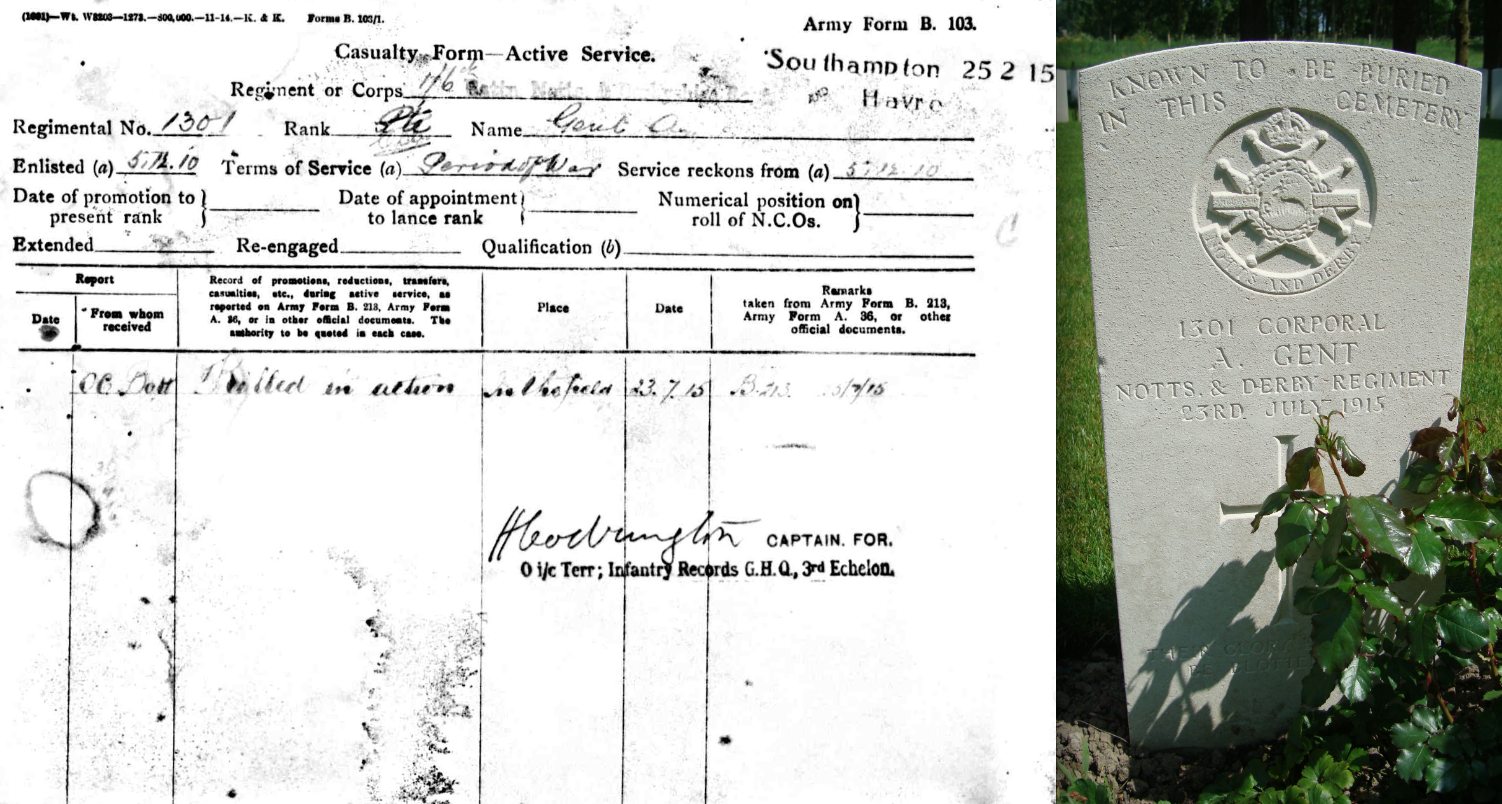 (1601)—Wt. W8203—1273.—500,000.—11-14.—K. & K. Forms B. 103/1.
Army Form B. 103.
Casualty Form—Active Service.
Southampton 25 2 15
Havre
Regiment or Corps 1/6
Regimental No. 1301 Rank Pte Name Gent A.
Enlisted (a) 5.12.10 Terms of Service (a) Period of War Service reckons from (a) 5.12.10
Date of promotion to present rank } Date of appointment to lance rank } Numerical position on roll of N.C.Os. }
Extended Re-engaged Qualification (b)
Report
Date
From whom received
Record of promotions, reductions, transfers,
casualties, etc., during active service, as
reported on Army Form B. 213, Army Form
A. 36, or in other official documents. The
authority to be quoted in each case.
Place
Date
Remarks
taken from Army Form B. 213,
Army Form A. 36, or other
official documents.
OC Batt Killed in action In the field 23.7.15 B 213
CAPTAIN. FOR.
O i/c Terr; Infantry Records G.H.Q., 3rd Echelon.
KNOWN TO BE BURIED
IN THIS CEMETERY
NOTTS AND DERBY
1301 CORPORAL
A. GENT
NOTTS. & DERBY REGIMENT
23RD. JULY 1915
THEIR GLORY
BE BLOTTE